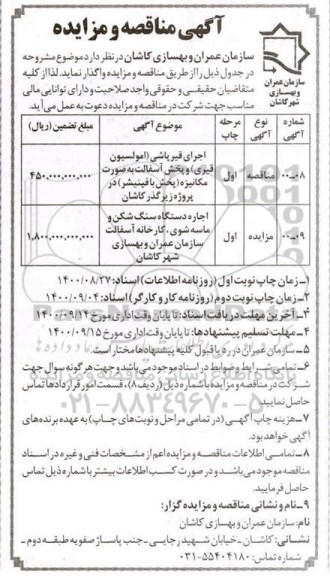 آگهی مناقصه و مزایده
سازمان عمران و بهسازی کاشان در نظر دارد موضوع مشروحه
در جدول ذیل را از طریق مناقصه و مزایده واگذار نماید. لذا از کلیه
متقاضیان حقیقی و حقوقی واجد صلاحیت و دارای توانایی مالی
مناسب جهت شرکت در مناقصه و مزایده دعوت به عمل می‌آید.
سازمان عمران
و بهسازی
شهر کاشان
شماره آگهی نوع آگهی مرحله چاپ موضوع آگهی مبلغ تضمین (ریال)
۰۰-۰۸ مناقصه اول اجرای قیرپاشی (امولسیون
قیری) و پخش آسفالت به صورت
مکانیزه (پخش با فینیشر) در
پروژه زیرگذر کاشان
۴۵۰,۰۰۰,۰۰۰,۰۰۰
۰۰-۰۹ مزایده اول اجاره دستگاه سنگ شکن و
ماسه شوی، کارخانه آسفالت
سازمان عمران و بهسازی
شهر کاشان
۱,۸۰۰,۰۰۰,۰۰۰,۰۰۰
۱- زمان چاپ نوبت اول (روزنامه اطلاعات) اسناد: ۱۴۰۰/۰۸/۲۷
۲- زمان چاپ نوبت دوم (روزنامه کار و کارگر) اسناد: ۱۴۰۰/۰۹/۰۴
۳- آخرین مهلت دریافت اسناد: تا پایان وقت اداری مورخ ۱۴۰۰/۰۹/۱۴
۴- مهلت تسلیم پیشنهادها: تا پایان وقت اداری مورخ ۱۴۰۰/۰۹/۱۵
۵- سازمان عمران در رد یا قبول کلیه پیشنهادها مختار است.
۶- تمامی شرایط و ضوابط در اسناد موجود می‌باشد و جهت هر گونه سوال جهت
شرکت در مناقصه و مزایده با شماره ذیل (ردیف ۸)، قسمت امور قراردادها تماس
حاصل نمایید.
۷- هزینه چاپ آگهی (در تمامی مراحل و نوبت‌های چاپ) به عهده برنده‌های
آگهی خواهد بود.
۸- تمامی اطلاعات مناقصه و مزایده اعم از مشخصات فنی و غیره در اسناد
مناقصه موجود می‌باشد و در صورت کسب اطلاعات بیشتر با شماره ذیل تماس
حاصل فرمایید.
۹- نام و نشانی مناقصه و مزایده گزار:
نام: سازمان عمران و بهسازی کاشان
نشانی: کاشان - خیابان شهید رجایی - جنب پاساژ صفویه طبقه دوم -
شماره تماس: ۵۵۴۰۴۱۸۰-۰۳۱
۰۲۱-۸۸۳۴۹۶۷۰-۵